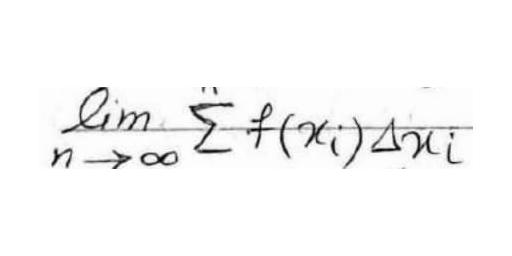 lim n→∞ Σ f(xᵢ) Δxᵢ